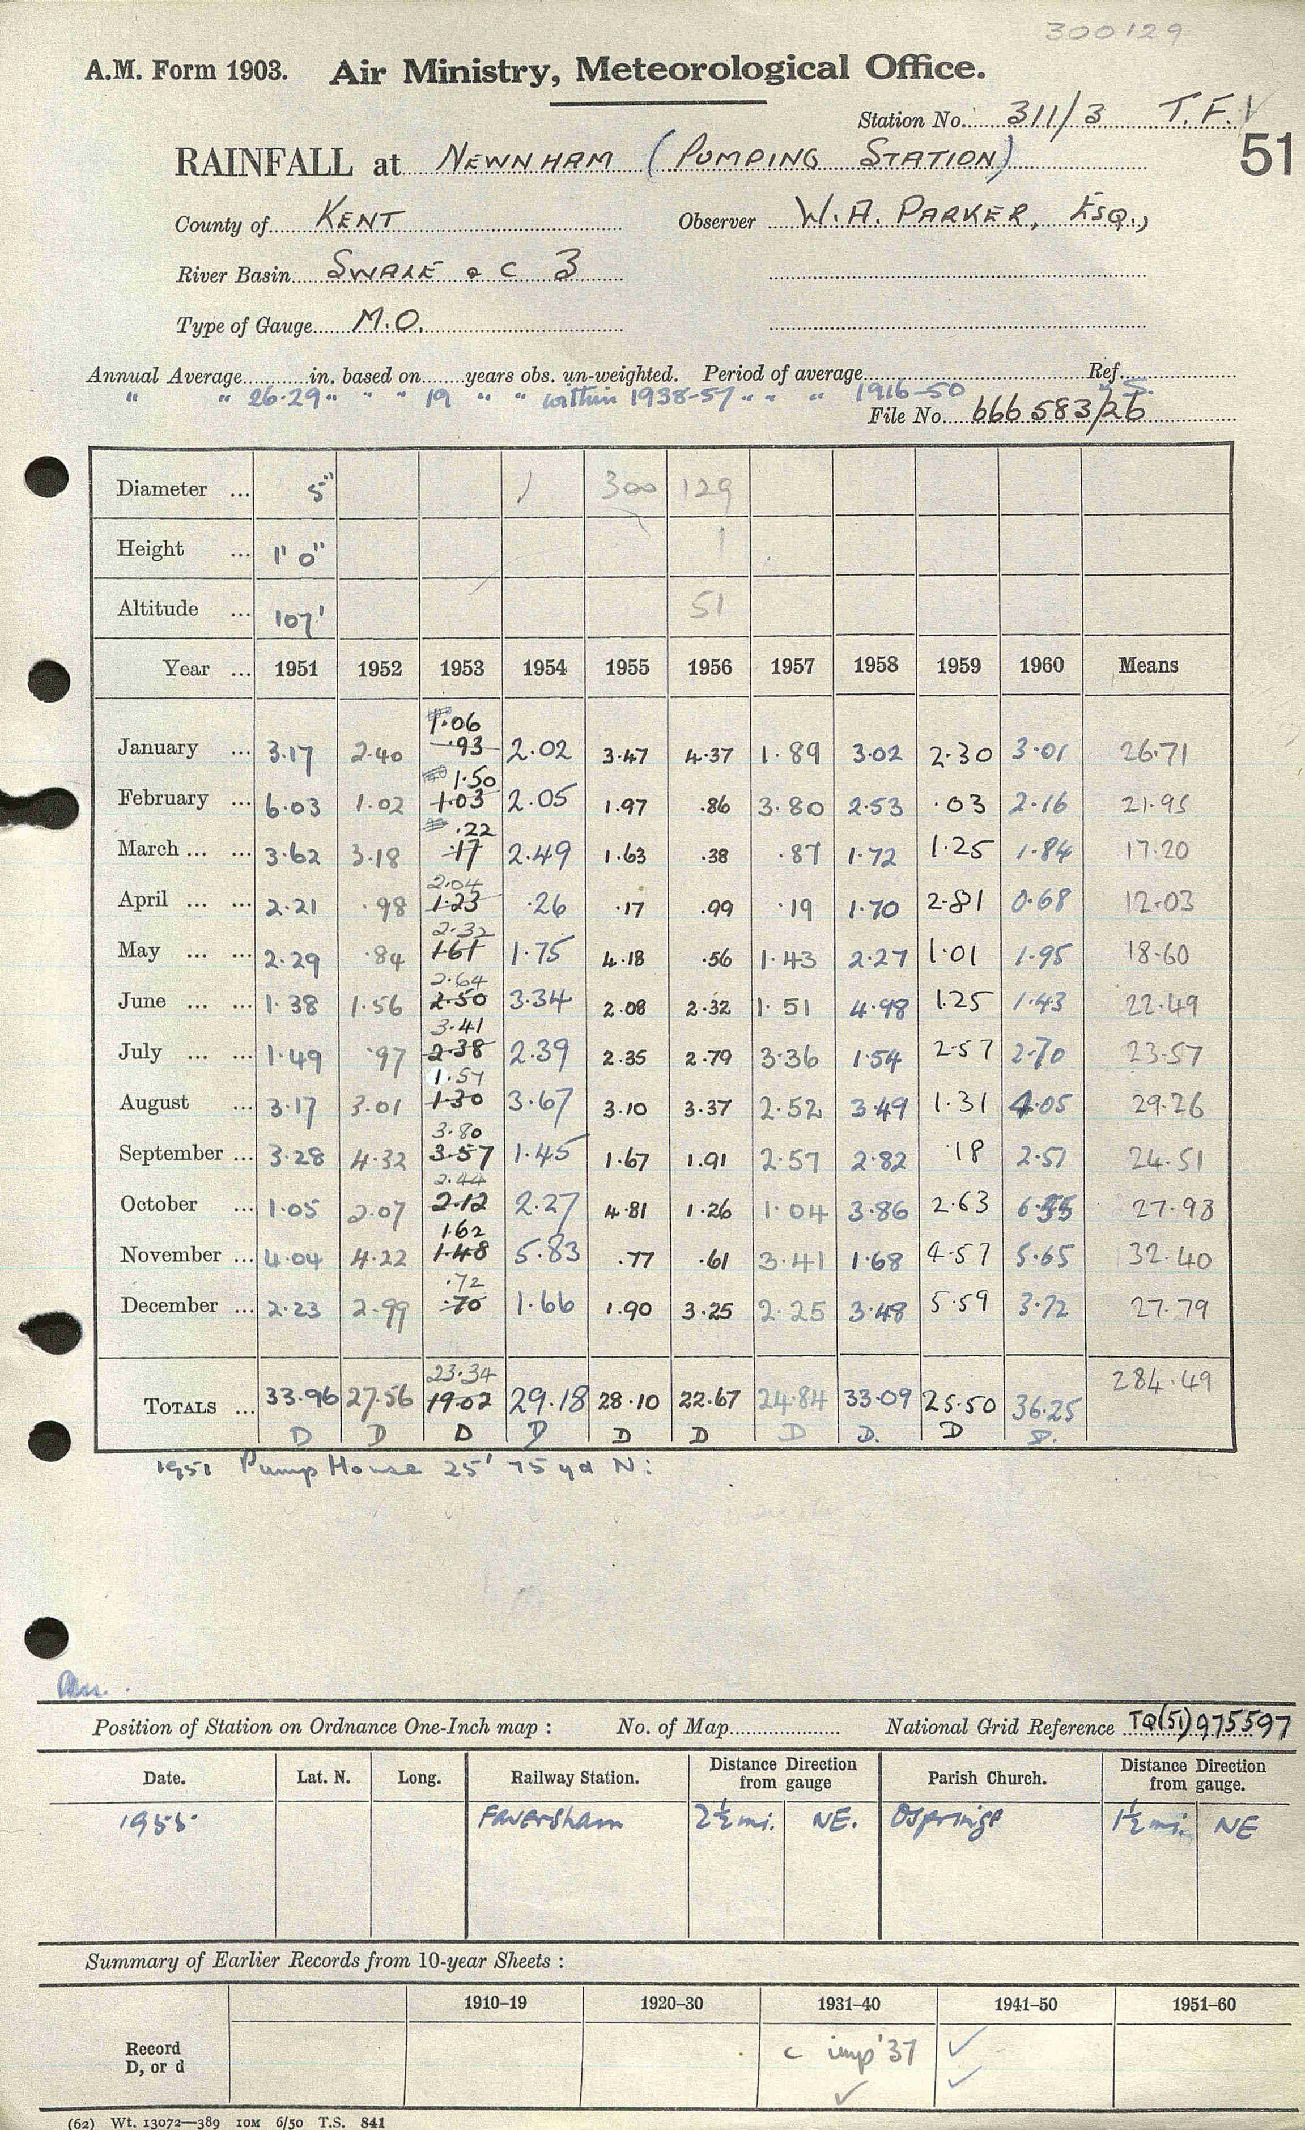 300129
A.M. Form 1903. Air Ministry, Meteorological Office.
Station No. 311/3 T.F.
51
RAINFALL at NEWNHAM (PUMPING STATION)
County of KENT Observer W.A. PARKER, ESQ.,
River Basin SWALE & C 3
Type of Gauge M.O.
Annual Average in. based on years obs. un-weighted. Period of average Ref.
" " 26.29 " " " 19 " " within 1938-57 " " " 1916-50 " S.
File No. 666583/26
Diameter ... 5" 300 129
Height ... 1' 0"
Altitude ... 107' 51
Year ... 1951 1952 1953 1954 1955 1956 1957 1958 1959 1960 Means
1.06
January ... 3.17 2.40 .93 2.02 3.47 4.37 1.89 3.02 2.30 3.01 26.71
1.50
February ... 6.03 1.02 1.03 2.05 1.97 .86 3.80 2.53 .03 2.16 21.95
.22
March ... ... 3.62 3.18 .17 2.49 1.63 .38 .87 1.72 1.25 1.84 17.20
2.04
April ... ... 2.21 .98 1.23 .26 .17 .99 .19 1.70 2.81 0.68 12.03
2.32
May ... ... 2.29 .84 1.61 1.75 4.18 .56 1.43 2.27 1.01 1.95 18.60
2.64
June ... ... 1.38 1.56 2.50 3.34 2.08 2.32 1.51 4.98 1.25 1.43 22.49
3.41
July ... ... 1.49 .97 2.38 2.39 2.35 2.79 3.36 1.54 2.57 2.70 23.57
1.57
August ... 3.17 3.01 1.30 3.67 3.10 3.37 2.52 3.49 1.31 4.05 29.26
3.80
September ... 3.28 4.32 3.57 1.45 1.67 1.91 2.57 2.82 .18 2.51 24.51
2.44
October ... 1.05 2.07 2.12 2.27 4.81 1.26 1.04 3.86 2.63 6.55 27.98
1.62
November ... 4.04 4.22 1.48 5.83 .77 .61 3.41 1.68 4.57 5.65 32.40
.72
December ... 2.23 2.99 .70 1.66 1.90 3.25 2.25 3.48 5.59 3.72 27.79
23.34 284.49
TOTALS ... 33.96 27.56 19.02 29.18 28.10 22.67 24.84 33.09 25.50 36.25
D D D D D D D D. D D.
1951 Pump House 25' 75 yd N:
Position of Station on Ordnance One-Inch map : No. of Map National Grid Reference TQ(51)975597
Date. Lat. N. Long. Railway Station. Distance from gauge Direction Parish Church. Distance from gauge. Direction
1955 Faversham 2½ mi. NE. Ospringe 1½ mi. NE
Summary of Earlier Records from 10-year Sheets :
1910–19 1920–30 1931–40 1941–50 1951–60
Record D, or d c imp '37 ✓
✓ ✓
(62) Wt. 13072—389 10M 6/50 T.S. 841